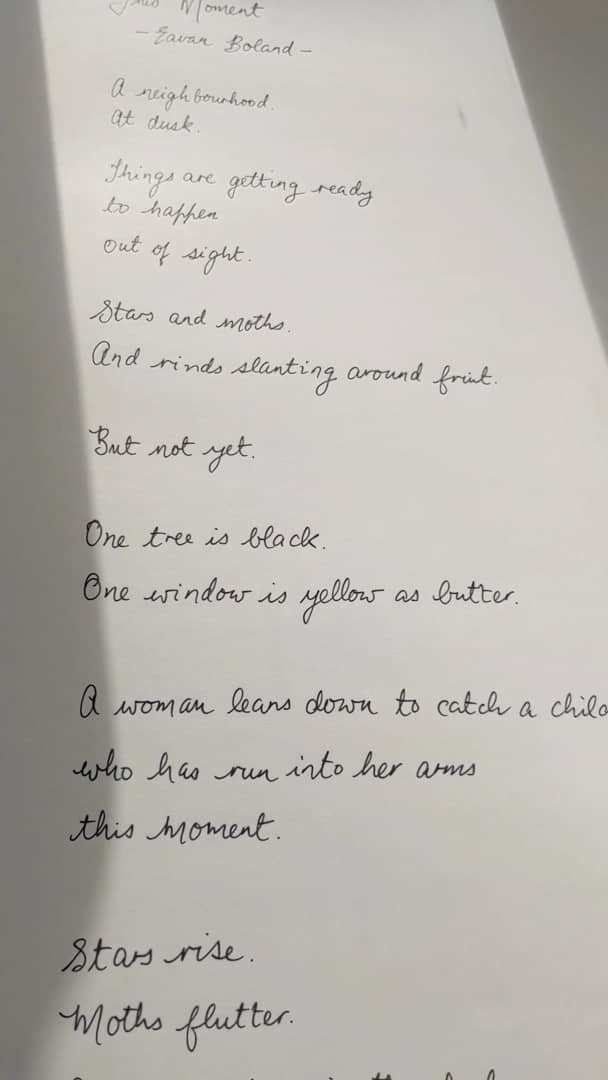 This Moment
- Eavan Boland -
A neighbourhood.
At dusk.
Things are getting ready
to happen
out of sight.
Stars and moths.
And rinds slanting around fruit.
But not yet.
One tree is black.
One window is yellow as butter.
A woman leans down to catch a child
who has run into her arms
this moment.
Stars rise.
Moths flutter.